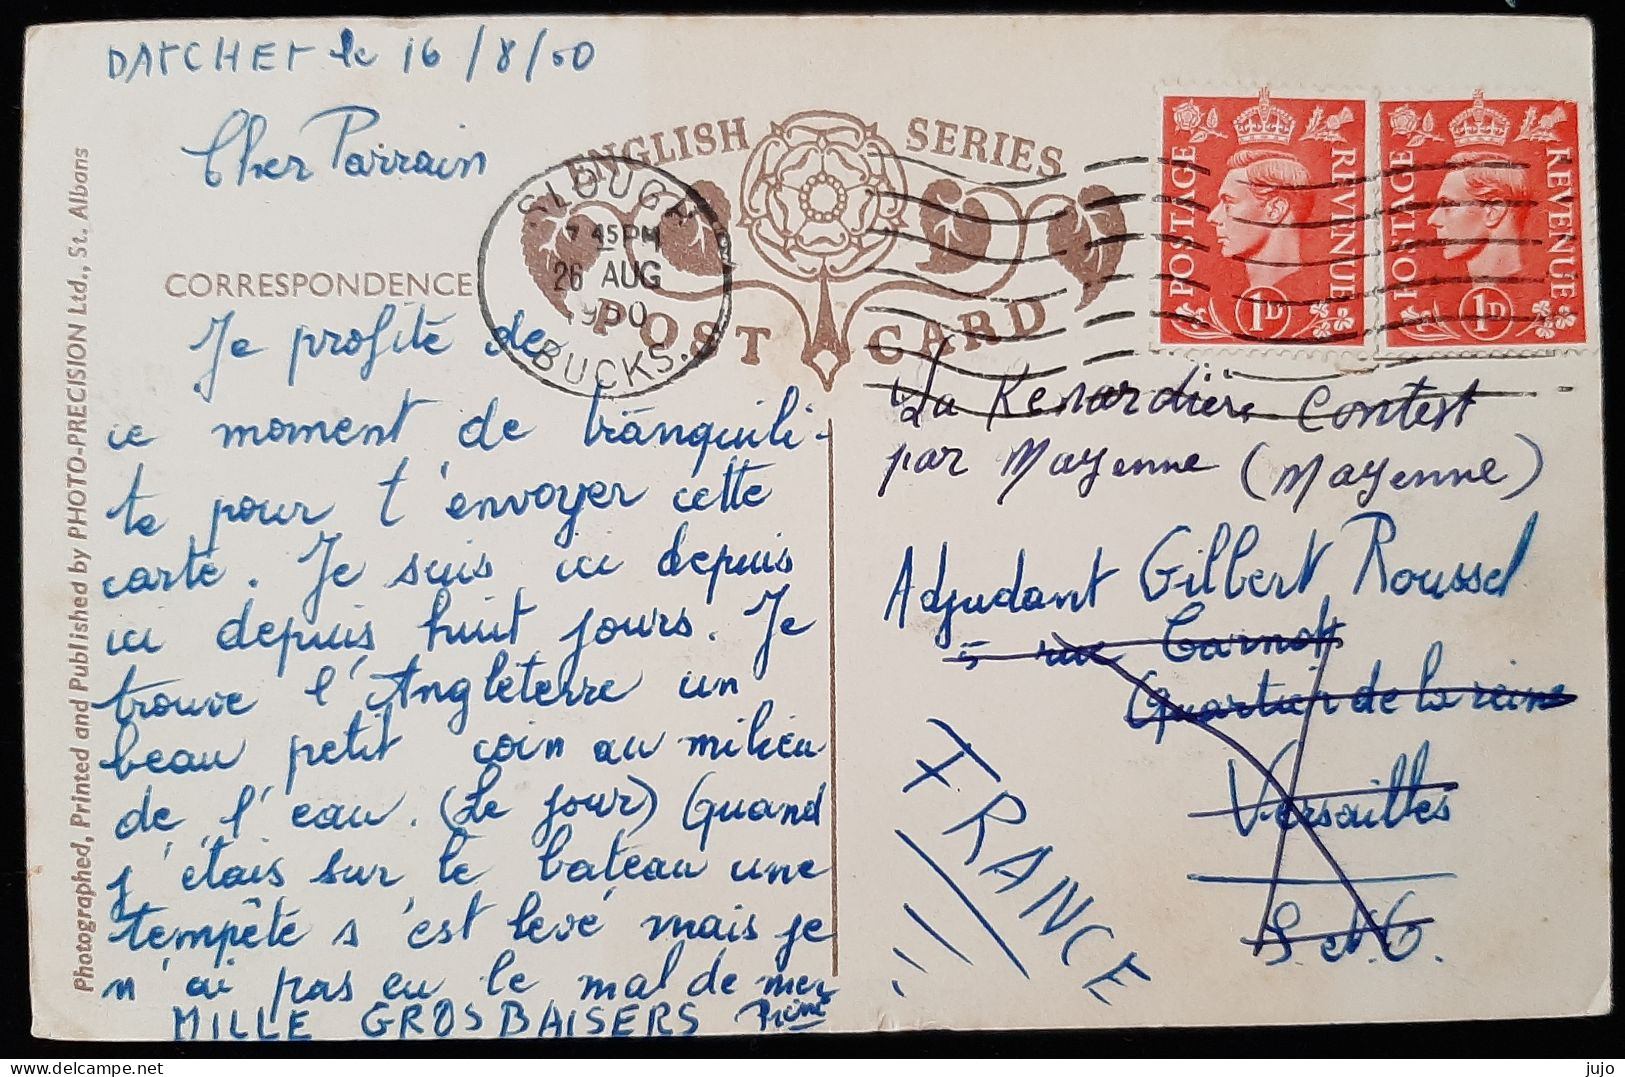 DATCHET le 16/8/50
Cher Parrain
ENGLISH SERIES
POST CARD
CORRESPONDENCE
SLOUGH
7 45 PM
26 AUG
1950
BUCKS.
POSTAGE REVENUE
1D
POSTAGE REVENUE
1D
Je profite de
ce moment de tranquili-
te pour t'envoyer cette
carte. Je suis ici depuis
ici depuis huit jours. Je
trouve l'Angleterre un
beau petit coin au milieu
de l'eau. (Le jour) (Quand
j'étais sur le bateau une
tempête s'est levé mais je
n'ai pas eu le mal de mer
MILLE GROS BAISERS
La Renardière Contest
par Mayenne (Mayenne)
Adjudant Gilbert Roussel
5 rue Carnot
Quartier de la reine
Versailles
S. et O.
FRANCE
Photographed, Printed and Published by PHOTO-PRECISION Ltd., St. Albans
jujo